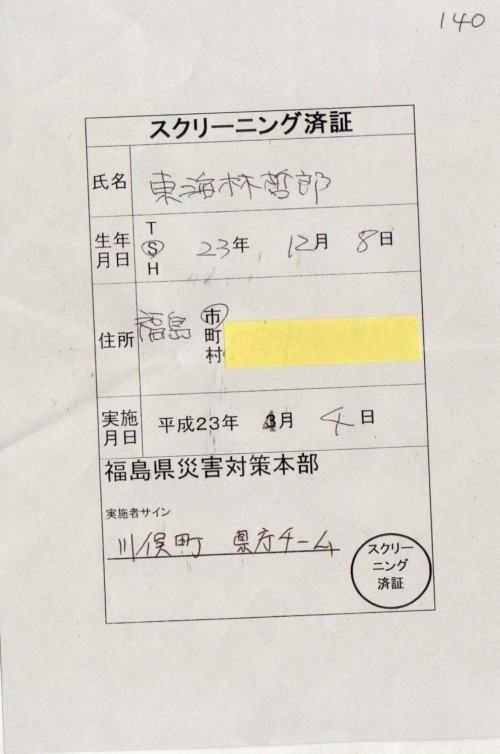 140
スクリーニング済証
氏名 東海林哲郎
生年月日 T S H 23年 12月 8日
住所 福島 市 町 村
実施月日 平成23年 4月 4日
福島県災害対策本部
実施者サイン
川俣町 県庁チーム
スクリーニング済証